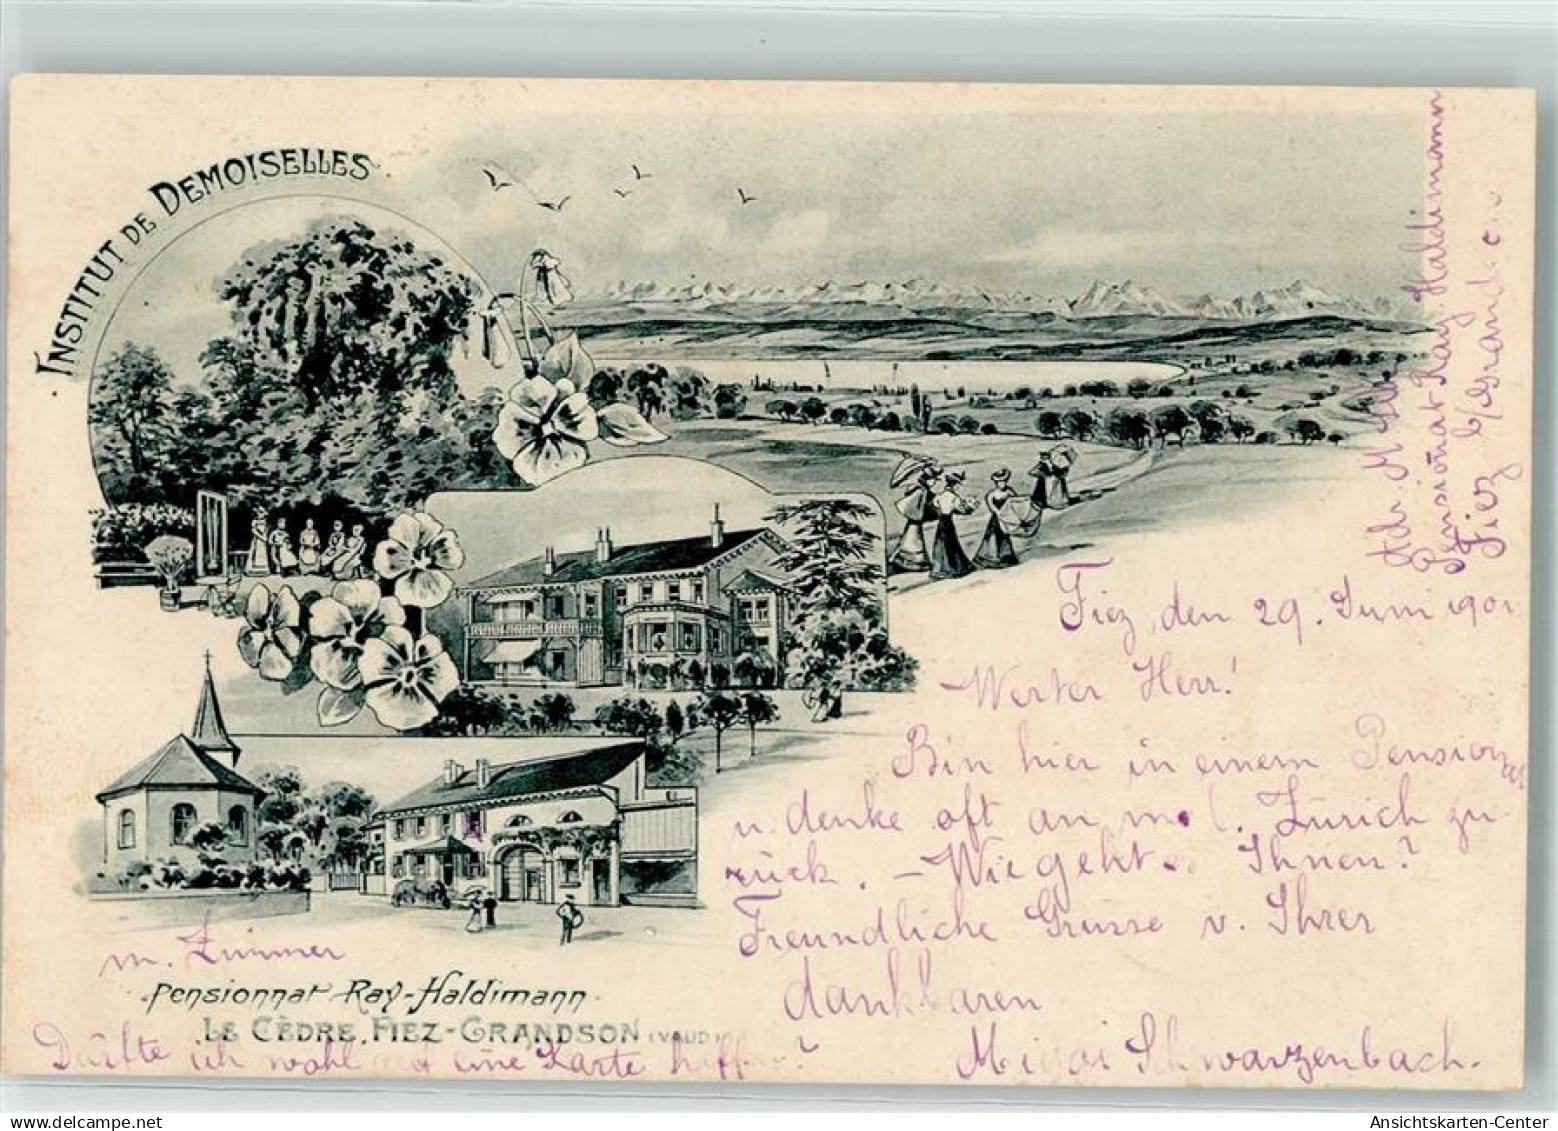 INSTITUT DE DEMOISELLES
Pensionnat Ray-Haldimann
Fiez b/Grandson
Fiez, den 29. Juni 1901
Werter Herr!
Bin hier in einem Pensionat
u. denke oft an m. l. Zürich zu-
rück. – Wie geht es Ihnen?
Freundliche Grüsse v. Ihrer
dankbaren
Schwarzenbach.
m. Zimmer
Pensionnat Ray-Haldimann
LE CÈDRE, FIEZ-GRANDSON (VAUD)
Dürfte ich wohl auf eine Karte hoffen?
Ansichtskarten-Center